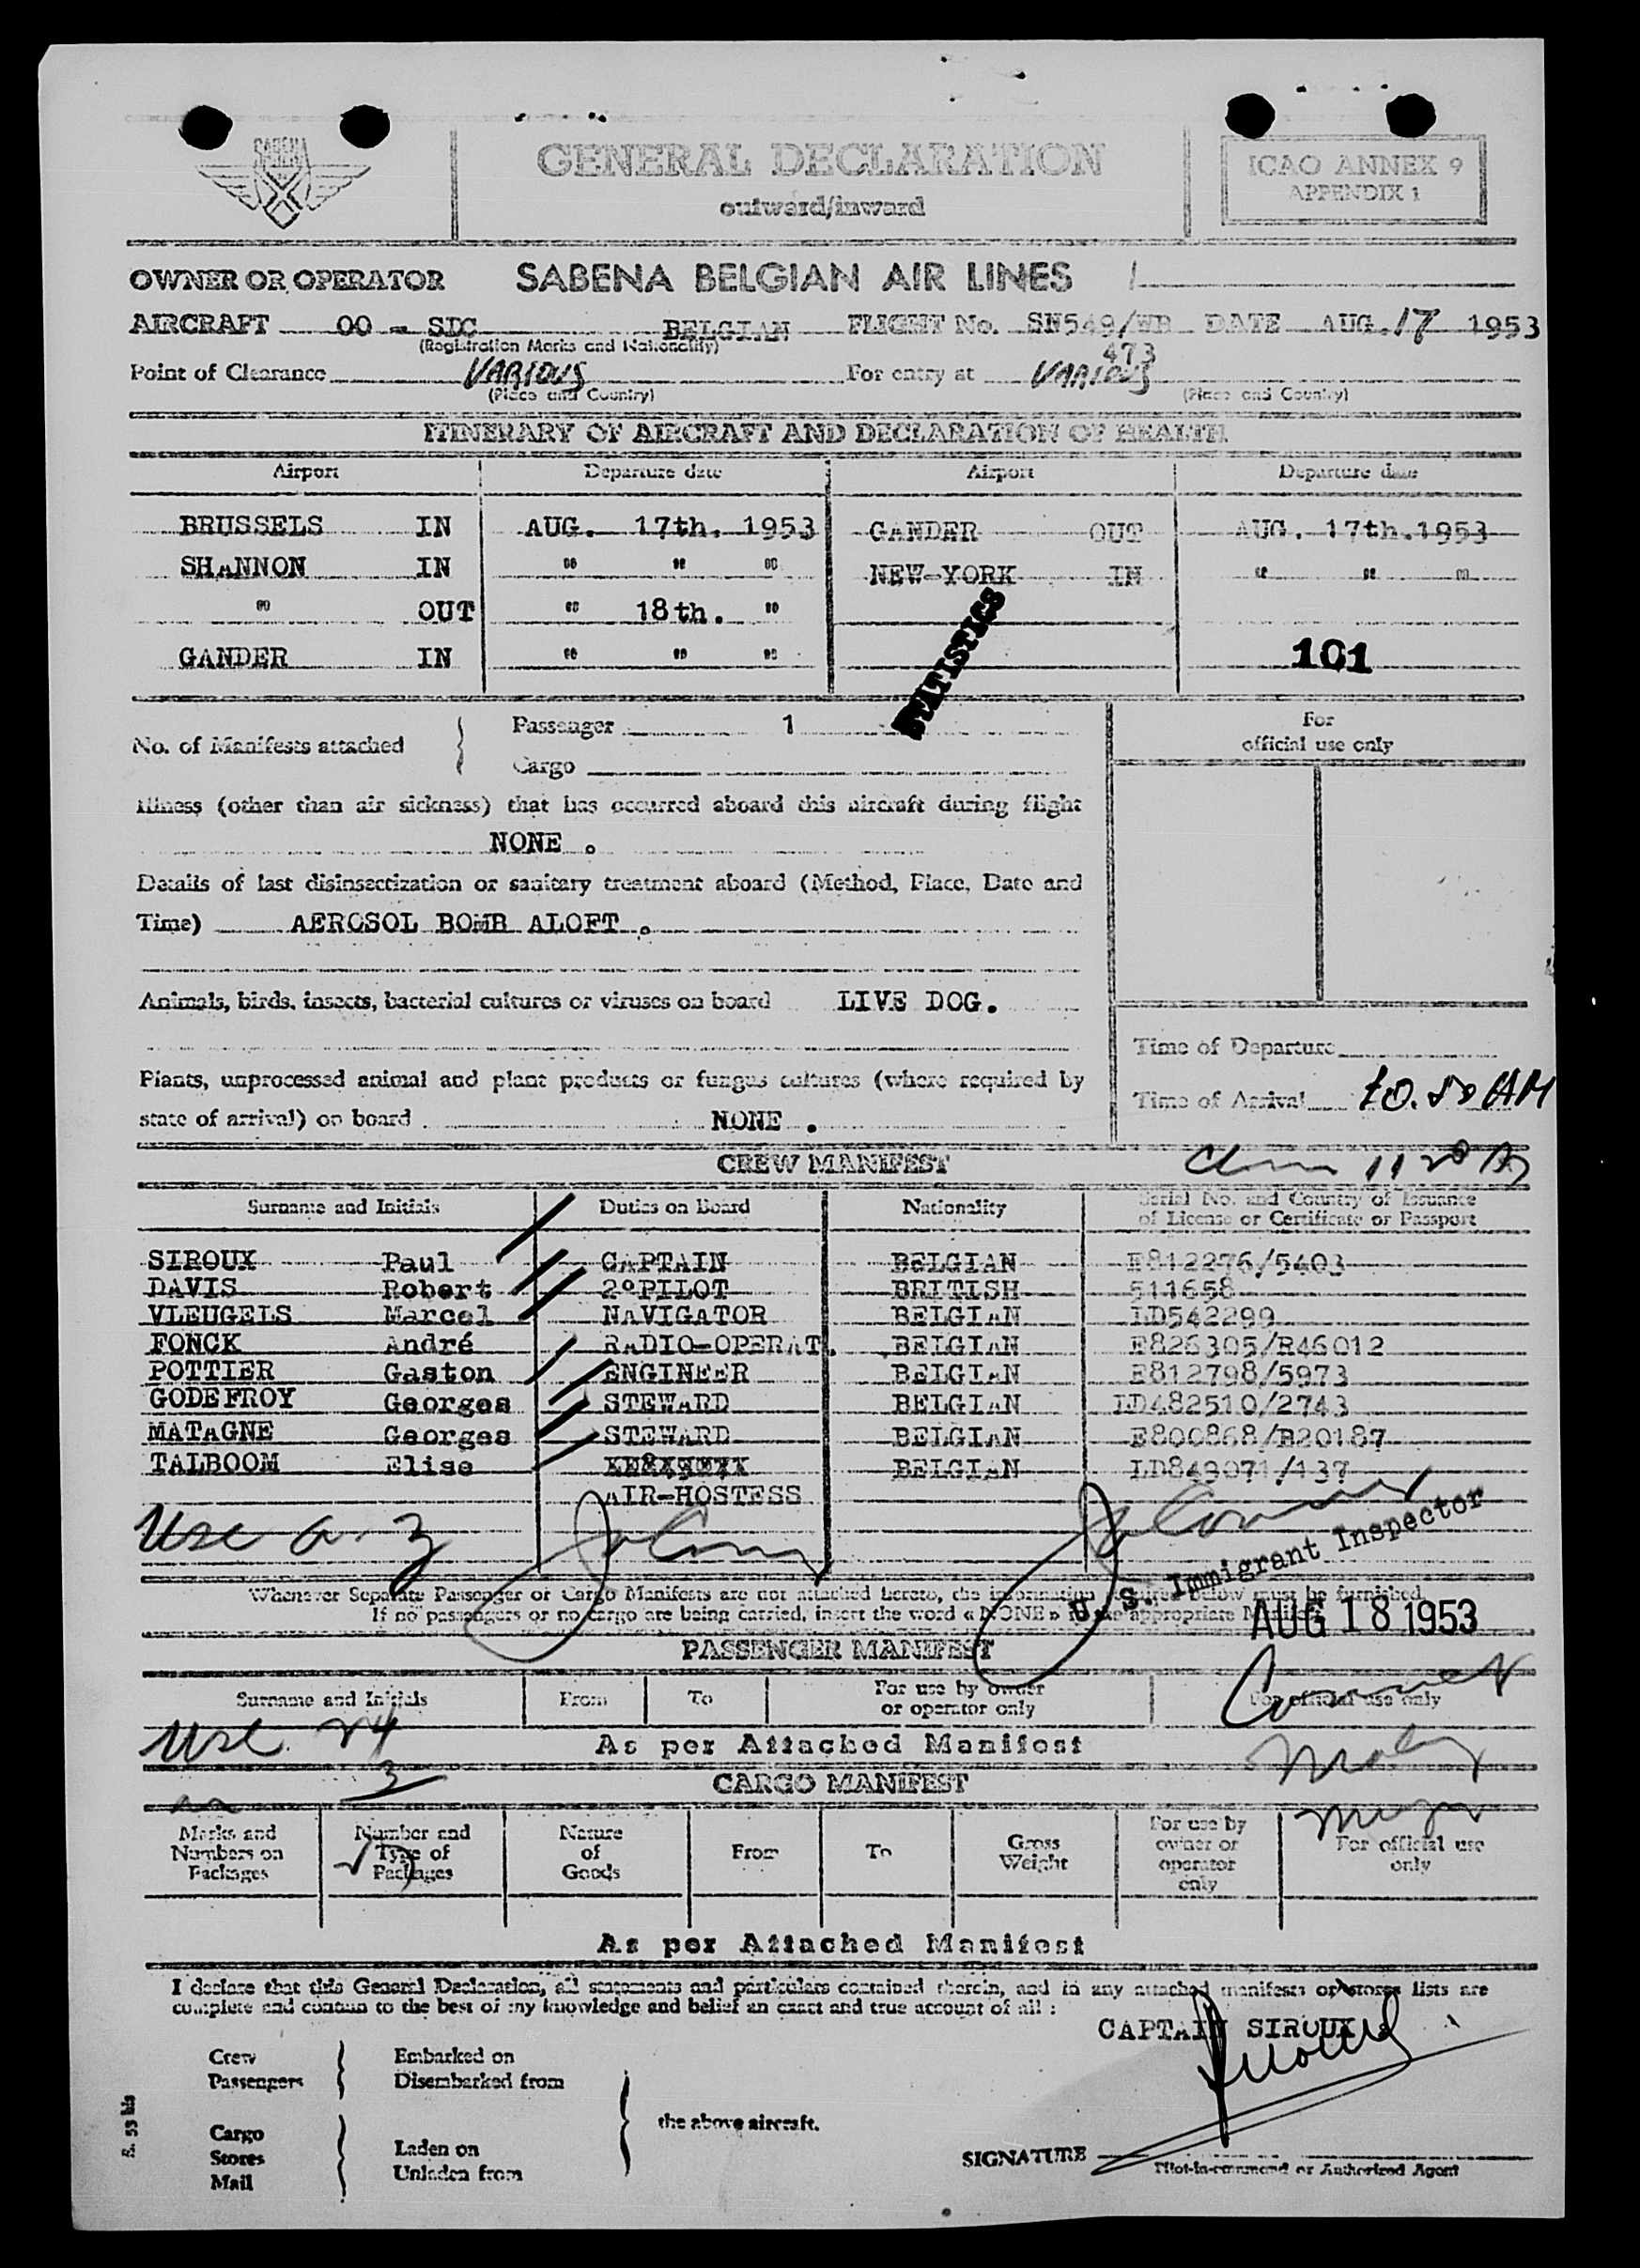 SABENA
GENERAL DECLARATION
outward/inward
ICAO ANNEX 9
APPENDIX 1
OWNER OR OPERATOR SABENA BELGIAN AIR LINES
AIRCRAFT OO - SDC BELGIAN FLIGHT No. SN549/WB DATE AUG. 17 1953
(Registration Marks and Nationality) 473
Point of Clearance VARIOUS For entry at VARIOUS
(Place and Country) (Place and Country)
ITINERARY OF AIRCRAFT AND DECLARATION OF HEALTH
Airport Departure date Airport Departure date
BRUSSELS IN AUG. 17th. 1953 GANDER OUT AUG. 17th. 1953
SHANNON IN " " " NEW-YORK IN " " "
" OUT " 18th. "
GANDER IN " " " 101
STATISTICS
No. of Manifests attached Passenger 1
Cargo
For
official use only
Illness (other than air sickness) that has occurred aboard this aircraft during flight
NONE .
Details of last disinsectization or sanitary treatment aboard (Method, Place, Date and
Time) AEROSOL BOMB ALOFT .
Animals, birds, insects, bacterial cultures or viruses on board LIVE DOG.
Time of Departure
Plants, unprocessed animal and plant products or fungus cultures (where required by
state of arrival) on board NONE .
Time of Arrival 10.50 AM
CREW MANIFEST
Surname and Initials Duties on Board Nationality Serial No. and Country of Issuance
of License or Certificate or Passport
SIROUX Paul CAPTAIN BELGIAN E812276/5403
DAVIS Robert 2°PILOT BRITISH 511658
VLEUGELS Marcel NAVIGATOR BELGIAN LD542299
FONCK André RADIO-OPERAT. BELGIAN E826305/R46012
POTTIER Gaston ENGINEER BELGIAN E812798/5973
GODEFROY Georges STEWARD BELGIAN LD482510/2743
MATAGNE Georges STEWARD BELGIAN E800868/B20187
TALBOOM Elise BELGIAN LD849071/137
AIR-HOSTESS
U. S. Immigrant Inspector
Whenever Separate Passenger or Cargo Manifests are not attached hereto, the information required below must be furnished.
If no passengers or no cargo are being carried, insert the word « NONE » in the appropriate Manifest
AUG 18 1953
PASSENGER MANIFEST
Surname and Initials From To For use by owner
or operator only For official use only
As per Attached Manifest
CARGO MANIFEST
Marks and
Numbers on
Packages Number and
Type of
Packages Nature
of
Goods From To Gross
Weight For use by
owner or
operator
only For official use
only
As per Attached Manifest
I declare that this General Declaration, all statements and particulars contained therein, and in any attached manifests or stores lists are
complete and contain to the best of my knowledge and belief an exact and true account of all :
CAPTAIN SIROUX
Crew Embarked on
Passengers Disembarked from
the above aircraft.
Cargo
Stores Laden on
Mail Unladen from
SIGNATURE
Pilot-in-command or Authorized Agent